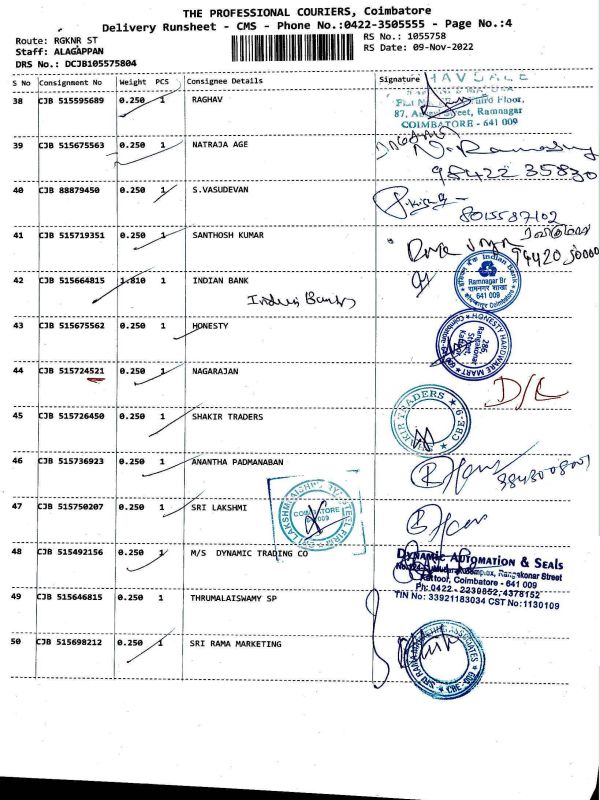 THE PROFESSIONAL COURIERS, Coimbatore
Delivery Runsheet - CMS - Phone No.:0422-3505555 - Page No.:4
Route: RGKNR ST
Staff: ALAGAPPAN
DRS No.: DCJB105575804
RS No.: 1055758
RS Date: 09-Nov-2022
S No Consignment No Weight PCS Consignee Details Signature
38 CJB 515595689 0.250 1 RAGHAV
Third Floor,
Street, Ramnagar
COIMBATORE - 641 009
39 CJB 515675563 0.250 1 NATRAJA AGE
98422 35830
40 CJB 88879450 0.250 1 S.VASUDEVAN
8015587102
41 CJB 515719351 0.250 1 SANTHOSH KUMAR
42 CJB 515664815 1.810 1 INDIAN BANK
Indian Bank
Ramnagar Br
रामनगर शाखा
641 009
43 CJB 515675562 0.250 1 HONESTY
HONESTY HARDWARE MART
286,
Rangakonar
Street
44 CJB 515724521 0.250 1 NAGARAJAN
D/L
45 CJB 515726450 0.250 1 SHAKIR TRADERS
KIR TRADERS
CBE-9
46 CJB 515736923 0.250 1 ANANTHA PADMANABAN
47 CJB 515750207 0.250 1 SRI LAKSHMI
COIMBATORE
48 CJB 515492156 0.250 1 M/S DYNAMIC TRADING CO
DYNAMIC AUTOMATION & SEALS
Rangakonar Street
Kattoor, Coimbatore - 641 009
Ph: 0422 - 2230852, 4378152
TIN No: 33921183034 CST No: 1130109
49 CJB 515646815 0.250 1 THRUMALAISWAMY SP
50 CJB 515698212 0.250 1 SRI RAMA MARKETING